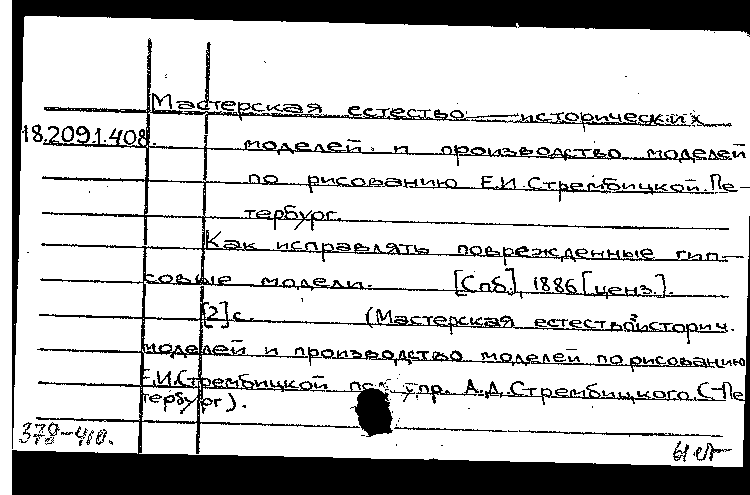 Мастерская естество-исторических
18.209.1.408. моделей и производство моделей
по рисованию Е.И.Стрембицкой. Пе-
тербург.
Как исправлять поврежденные гип-
совые модели. [Спб.], 1886 [ценз.].
[2] с. (Мастерская естество-историч.
моделей и производство моделей по рисованию
Е.И.Стрембицкой под упр. А.Д.Стрембицкого. С-Пе
тербург).
379-410.